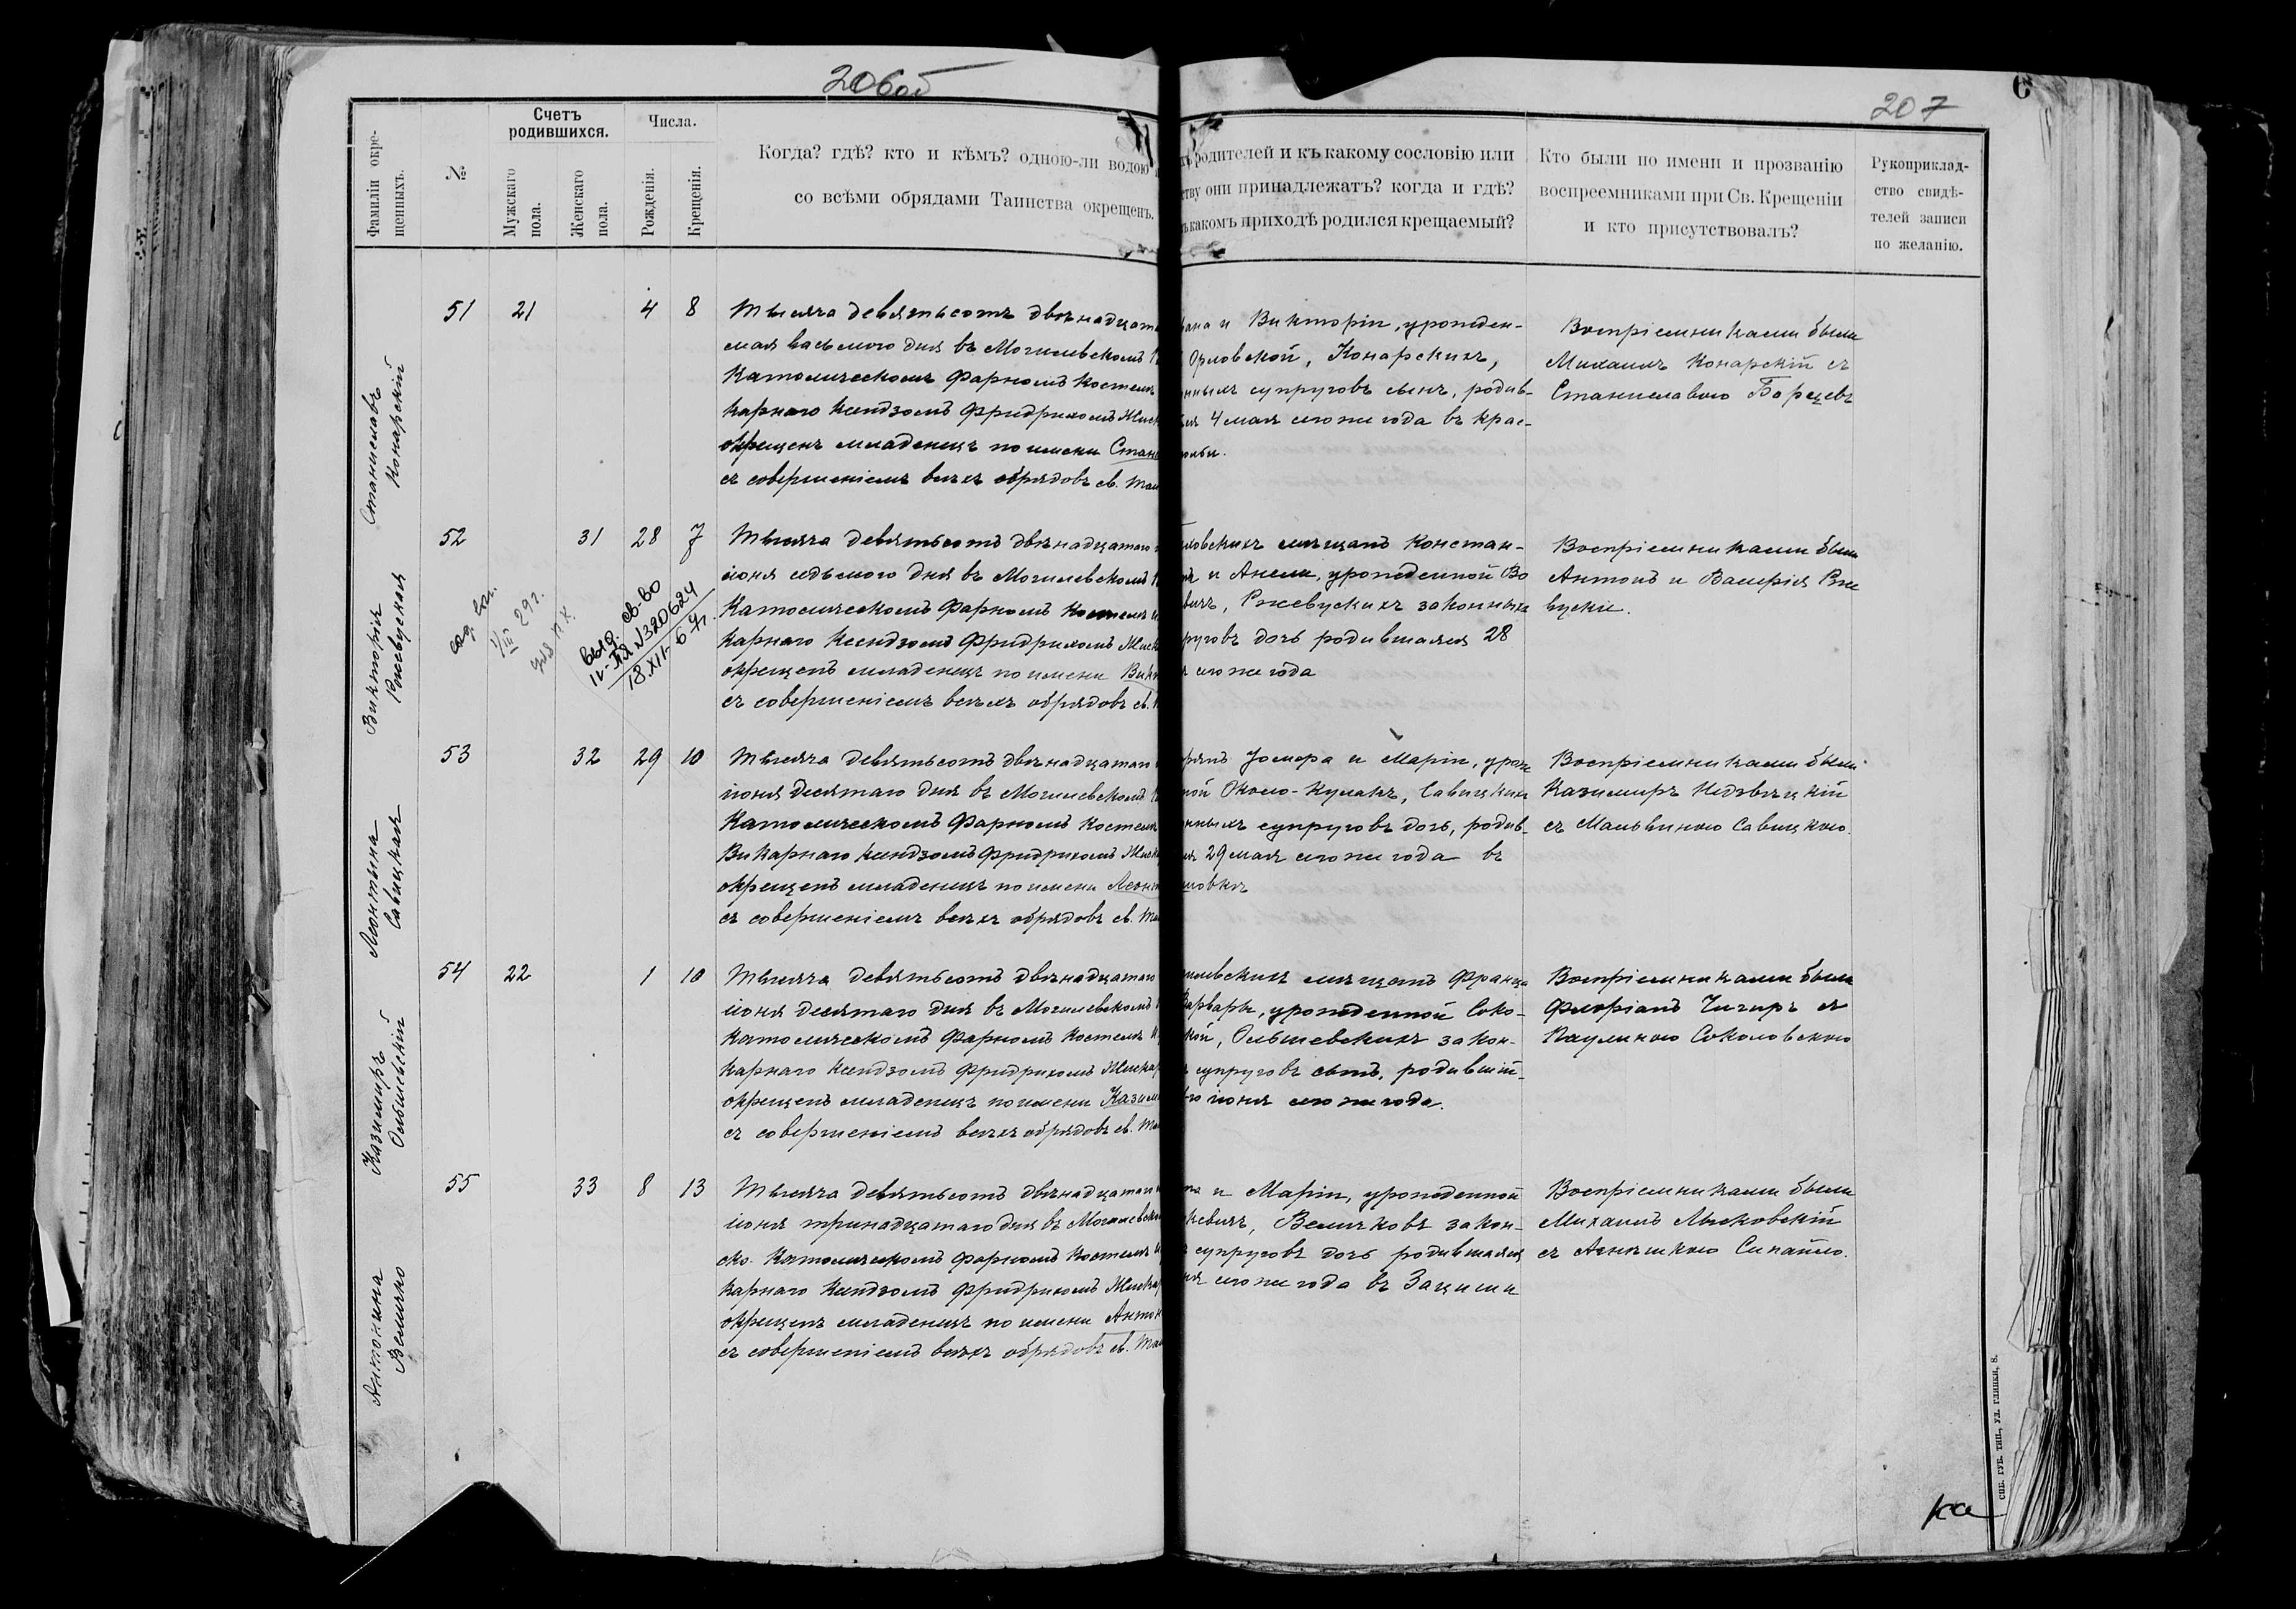 206об
207
6
Фамиліи окре-
щенныхъ.
№
Счетъ
родившихся.
Мужскаго
пола.
Женскаго
пола.
Числа.
Рожденія.
Крещенія.
Когда? гдѣ? кто и кѣмъ? одною-ли водою
со всѣми обрядами Таинства окрещенъ.
родителей и къ какому сословію или
ству они принадлежатъ? когда и гдѣ?
какомъ приходѣ родился крещаемый?
Кто были по имени и прозванію
воспреемниками при Св. Крещеніи
и кто присутствовалъ?
Рукоприклад-
ство свидѣ-
телей записи
по желанію.
Станиславъ
Конарскій
51 21 4 8
Тысяча девятьсотъ двѣнадцат
мая восьмого дня въ Могилевскомъ
Католическомъ Фарномъ Костелѣ
карнаго Ксендзомъ Фридрихомъ
окрещенъ младенецъ по имени Стан
съ совершеніемъ всѣхъ обрядовъ св. Таи
вана и Викторіи, урожден-
Орловской, Конарскихъ,
нныхъ супруговъ сынъ, родив-
ся 4 мая сего же года въ крас-
Воспріемниками были
Михаилъ Конарскій съ
Станиславою Борцевъ
Викторія
Ржевуская
52 31 28 7
выд. св-во
№ 320624
18.XII-67г.
29г.
Тысяча девятьсотъ двѣнадцатаго
іюня седьмого дня въ Могилевскомъ
Католическомъ Фарномъ Костелѣ
карнаго Ксендзомъ Фридрихомъ
окрещенъ младенецъ по имени Вик
съ совершеніемъ всѣхъ обрядовъ св.
ловскихъ мѣщанъ Констан-
и Анели, урожденной Во
вичъ, Ржевускихъ законныхъ
руговъ дочь родившаяся 28
сего же года
Воспріемниками были
Антонъ и Валерія Рже
вускіе.
Леонтына
Савицкая
53 32 29 10
Тысяча девятьсотъ двѣнадцатаго
іюня десятаго дня въ Могилевскомъ
Католическомъ Фарномъ Костелѣ
Викарнаго Ксендзомъ Фридрихомъ
окрещенъ младенецъ по имени Леонт
съ совершеніемъ всѣхъ обрядовъ св. Та
рянъ Іосифа и Маріи, урож
ной Около-Кулакъ, Савицкихъ
нныхъ супруговъ дочь, родив-
ся 29 мая сего же года въ
ловкѣ
Воспріемниками были
Казимиръ Недзвѣцкій
съ Мальвиною Савицкою.
Казимиръ
Ольшевскій
54 22 1 10
Тысяча девятьсотъ двѣнадцатаго
іюня десятаго дня въ Могилевскомъ
Католическомъ Фарномъ Костелѣ
карнаго Ксендзомъ Фридрихомъ
окрещенъ младенецъ по имени Казими
съ совершеніемъ всѣхъ обрядовъ св. Та
илевскихъ мѣщанъ Франца
Варвары, урожденной Соко-
кой, Ольшевскихъ закон-
супруговъ сынъ, родившій-
го іюня сего же года.
Воспріемниками были
Флоріанъ Чигиръ съ
Паулиною Соколовскою
Антонина
Величко
55 33 8 13
Тысяча девятьсотъ двѣнадцатаго
іюня тринадцатаго дня въ Могилевско
ско-Католическомъ Фарномъ Костелѣ
карнаго Ксендзомъ Фридрихомъ
окрещенъ младенецъ по имени Антон
съ совершеніемъ всѣхъ обрядовъ св. Таи
и Маріи, урожденной
кевичъ, Величковъ закон-
супруговъ дочь родившаяся
сего же года въ Зацишьи
Воспріемниками были
Михаилъ Лысковскій
съ Агнѣшкою Синайло.
СПБ. ГУБ. ТИП., УЛ. ГЛИНКИ, 8.
ка